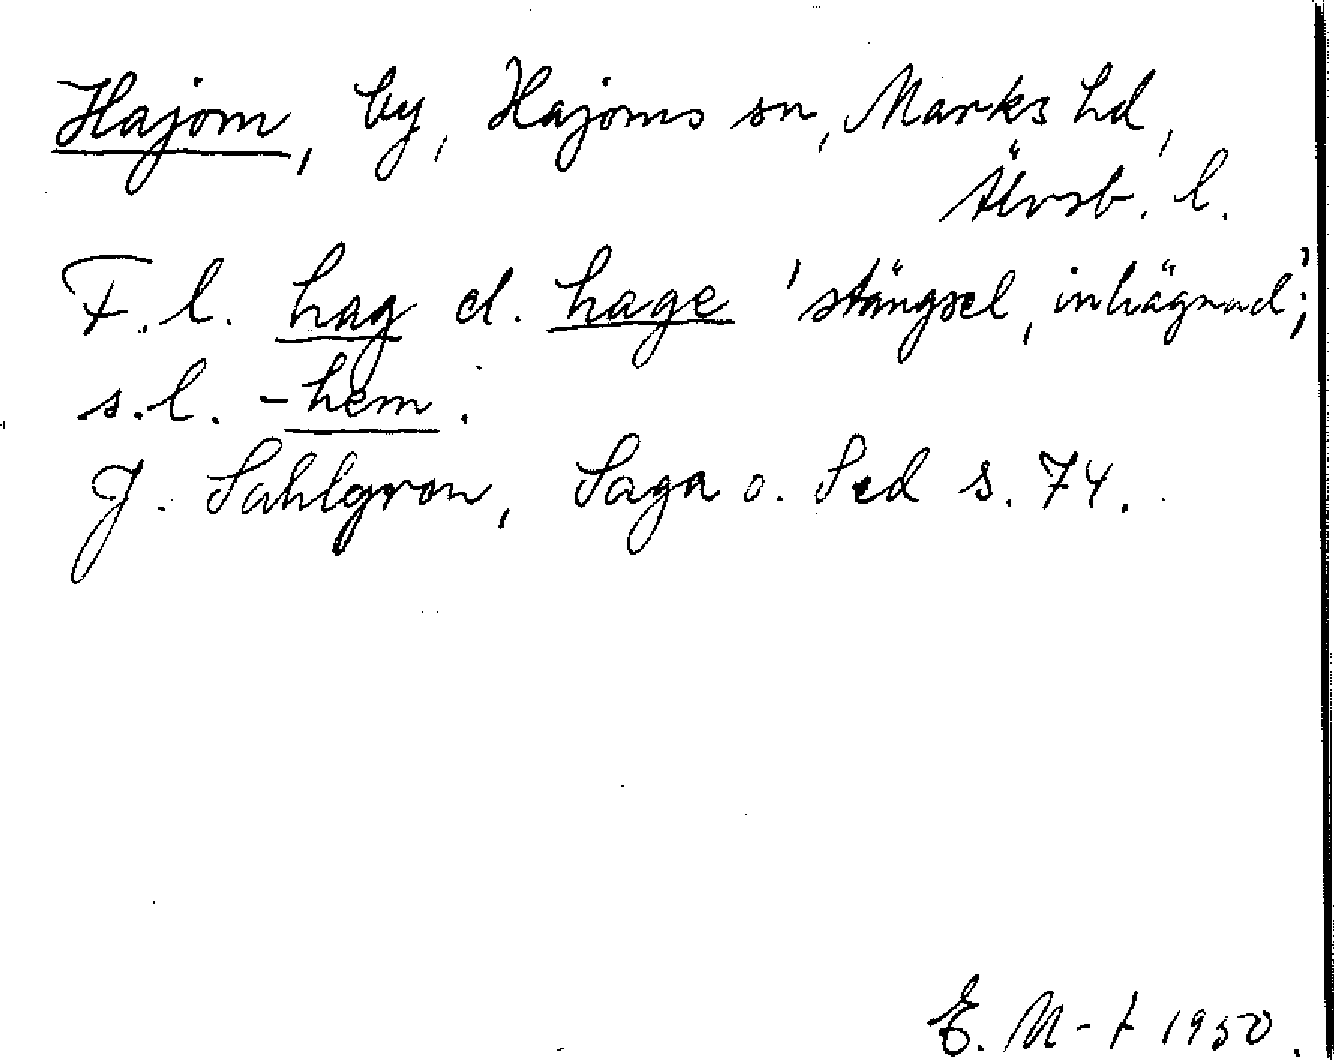 Hajom, by, Hajoms sn, Marks hd,
Älvsb. l.
F.l. hag el. hage 'stängsel, inhägnad';
s.l. -hem.
J. Sahlgren, Saga o. Sed s. 74.
E. N-t 1950.